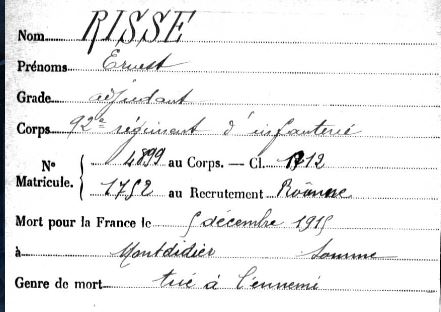 Nom RISSE
Prénoms Ernest
Grade adjudant
Corps 92e régiment d'infanterie
No 4899 au Corps. — Cl. 1912
Matricule. 1752 au Recrutement Roanne
Mort pour la France le 5 décembre 1915
à Montdidier Somme
Genre de mort tué à l'ennemi